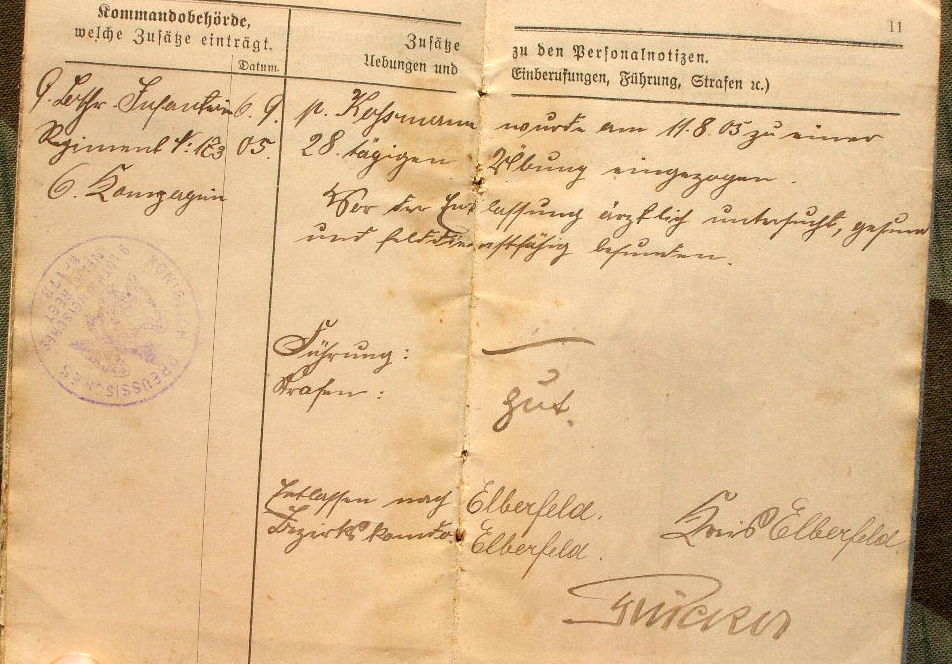 11
Kommandobehörde,
welche Zusätze einträgt.
Datum.
Zusätze zu den Personalnotizen.
Uebungen und Einberufungen, Führung, Strafen ꝛc.)
9. Lothr Infanterie 6. 9. p. Kossmann wurde am 11.8.05 zu einer
Regiment N: 173 05. 28. tägigen Übung eingezogen.
6. Kompagnie
Vor der Entlassung ärztlich untersucht, gesund
und felddienstfähig befunden.
KÖNIGLICH PREUSSISCHES
Führung:
Strafen:
gut.
Entlassen nach Elberfeld. Kreis Elberfeld
Bezirkskomdo. Elberfeld.